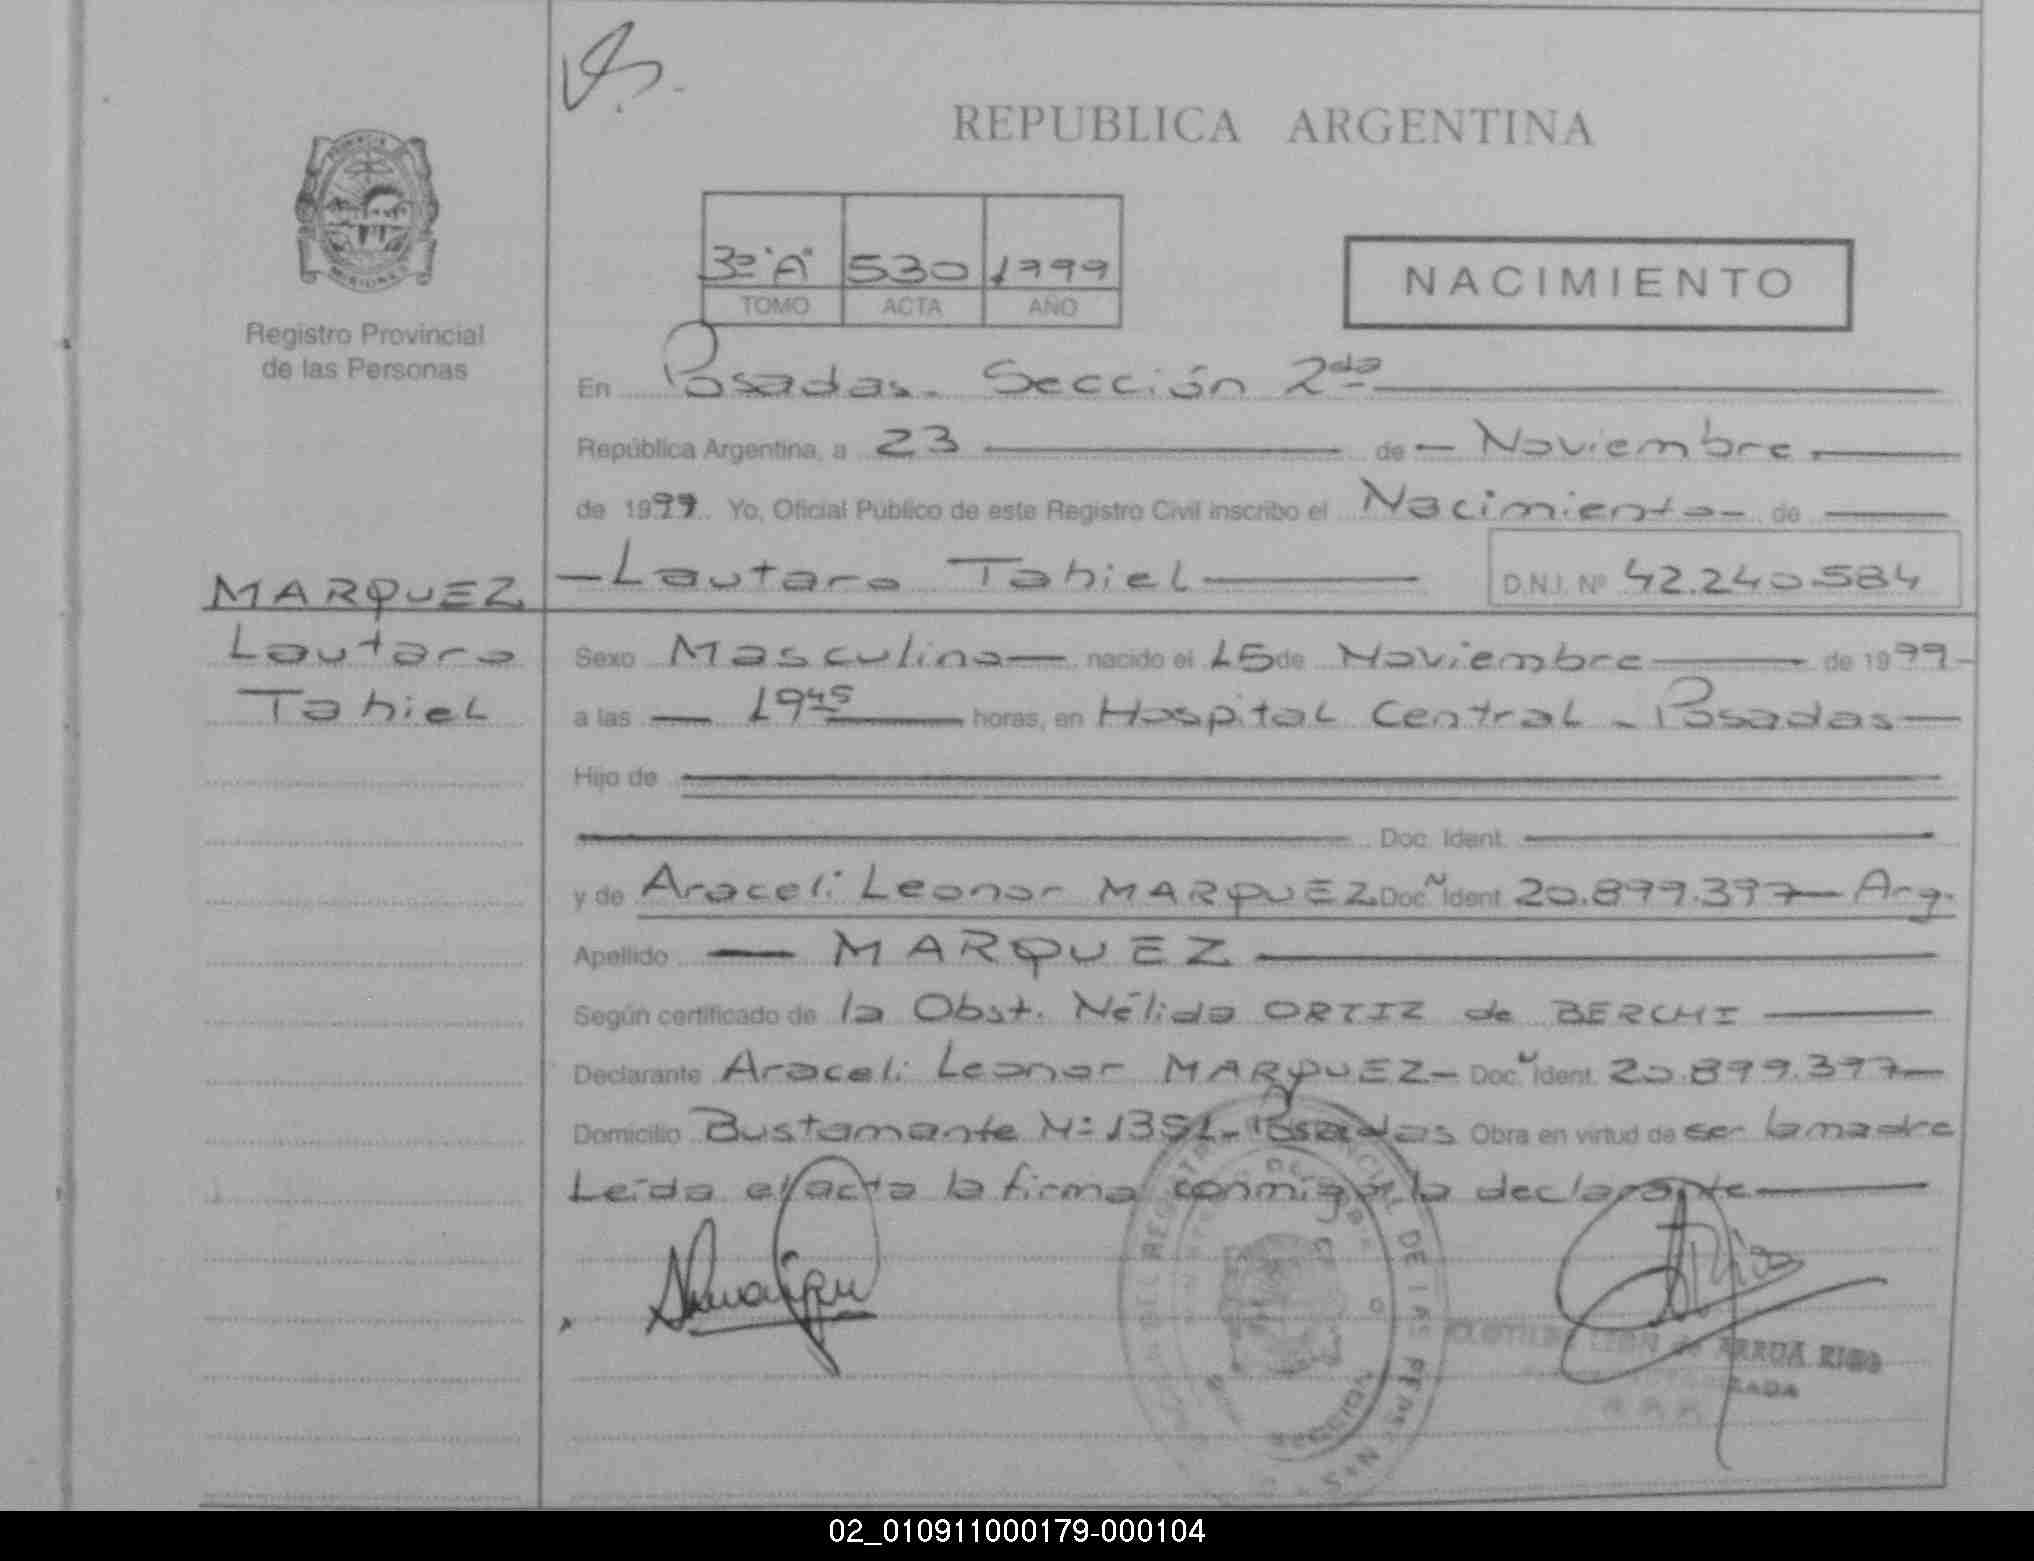 REPUBLICA ARGENTINA
PROVINCIA
MISIONES
Registro Provincial
de las Personas
3º "A" 530 1999
TOMO ACTA AÑO
NACIMIENTO
En Posadas. Sección 2da
República Argentina, a 23 de Noviembre
de 1999. Yo, Oficial Público de este Registro Civil inscribo el Nacimiento de
Lautaro Tahiel D.N.I. Nº 42.240.584
MARQUEZ
Lautaro
Tahiel
Sexo Masculino nacido el 15 de Noviembre de 1999
a las 19 45 horas, en Hospital Central - Posadas
Hijo de
Doc. Ident.
y de Araceli Leonor MARQUEZ Doc. N Ident. 20.899.397 Arg.
Apellido MARQUEZ
Según certificado de la Obst. Nélida ORTIZ de BERCHI
Declarante Araceli Leonor MARQUEZ - Doc. N Ident. 20.899.397
Domicilio Bustamante Nº 1351 - Posadas Obra en virtud de ser la madre
Leída el acta la firma conmigo la declarante
DEL REGISTRO PROVINCIAL DE LAS PERSONAS
SECCION
de ARRUA RIOS
02_010911000179-000104